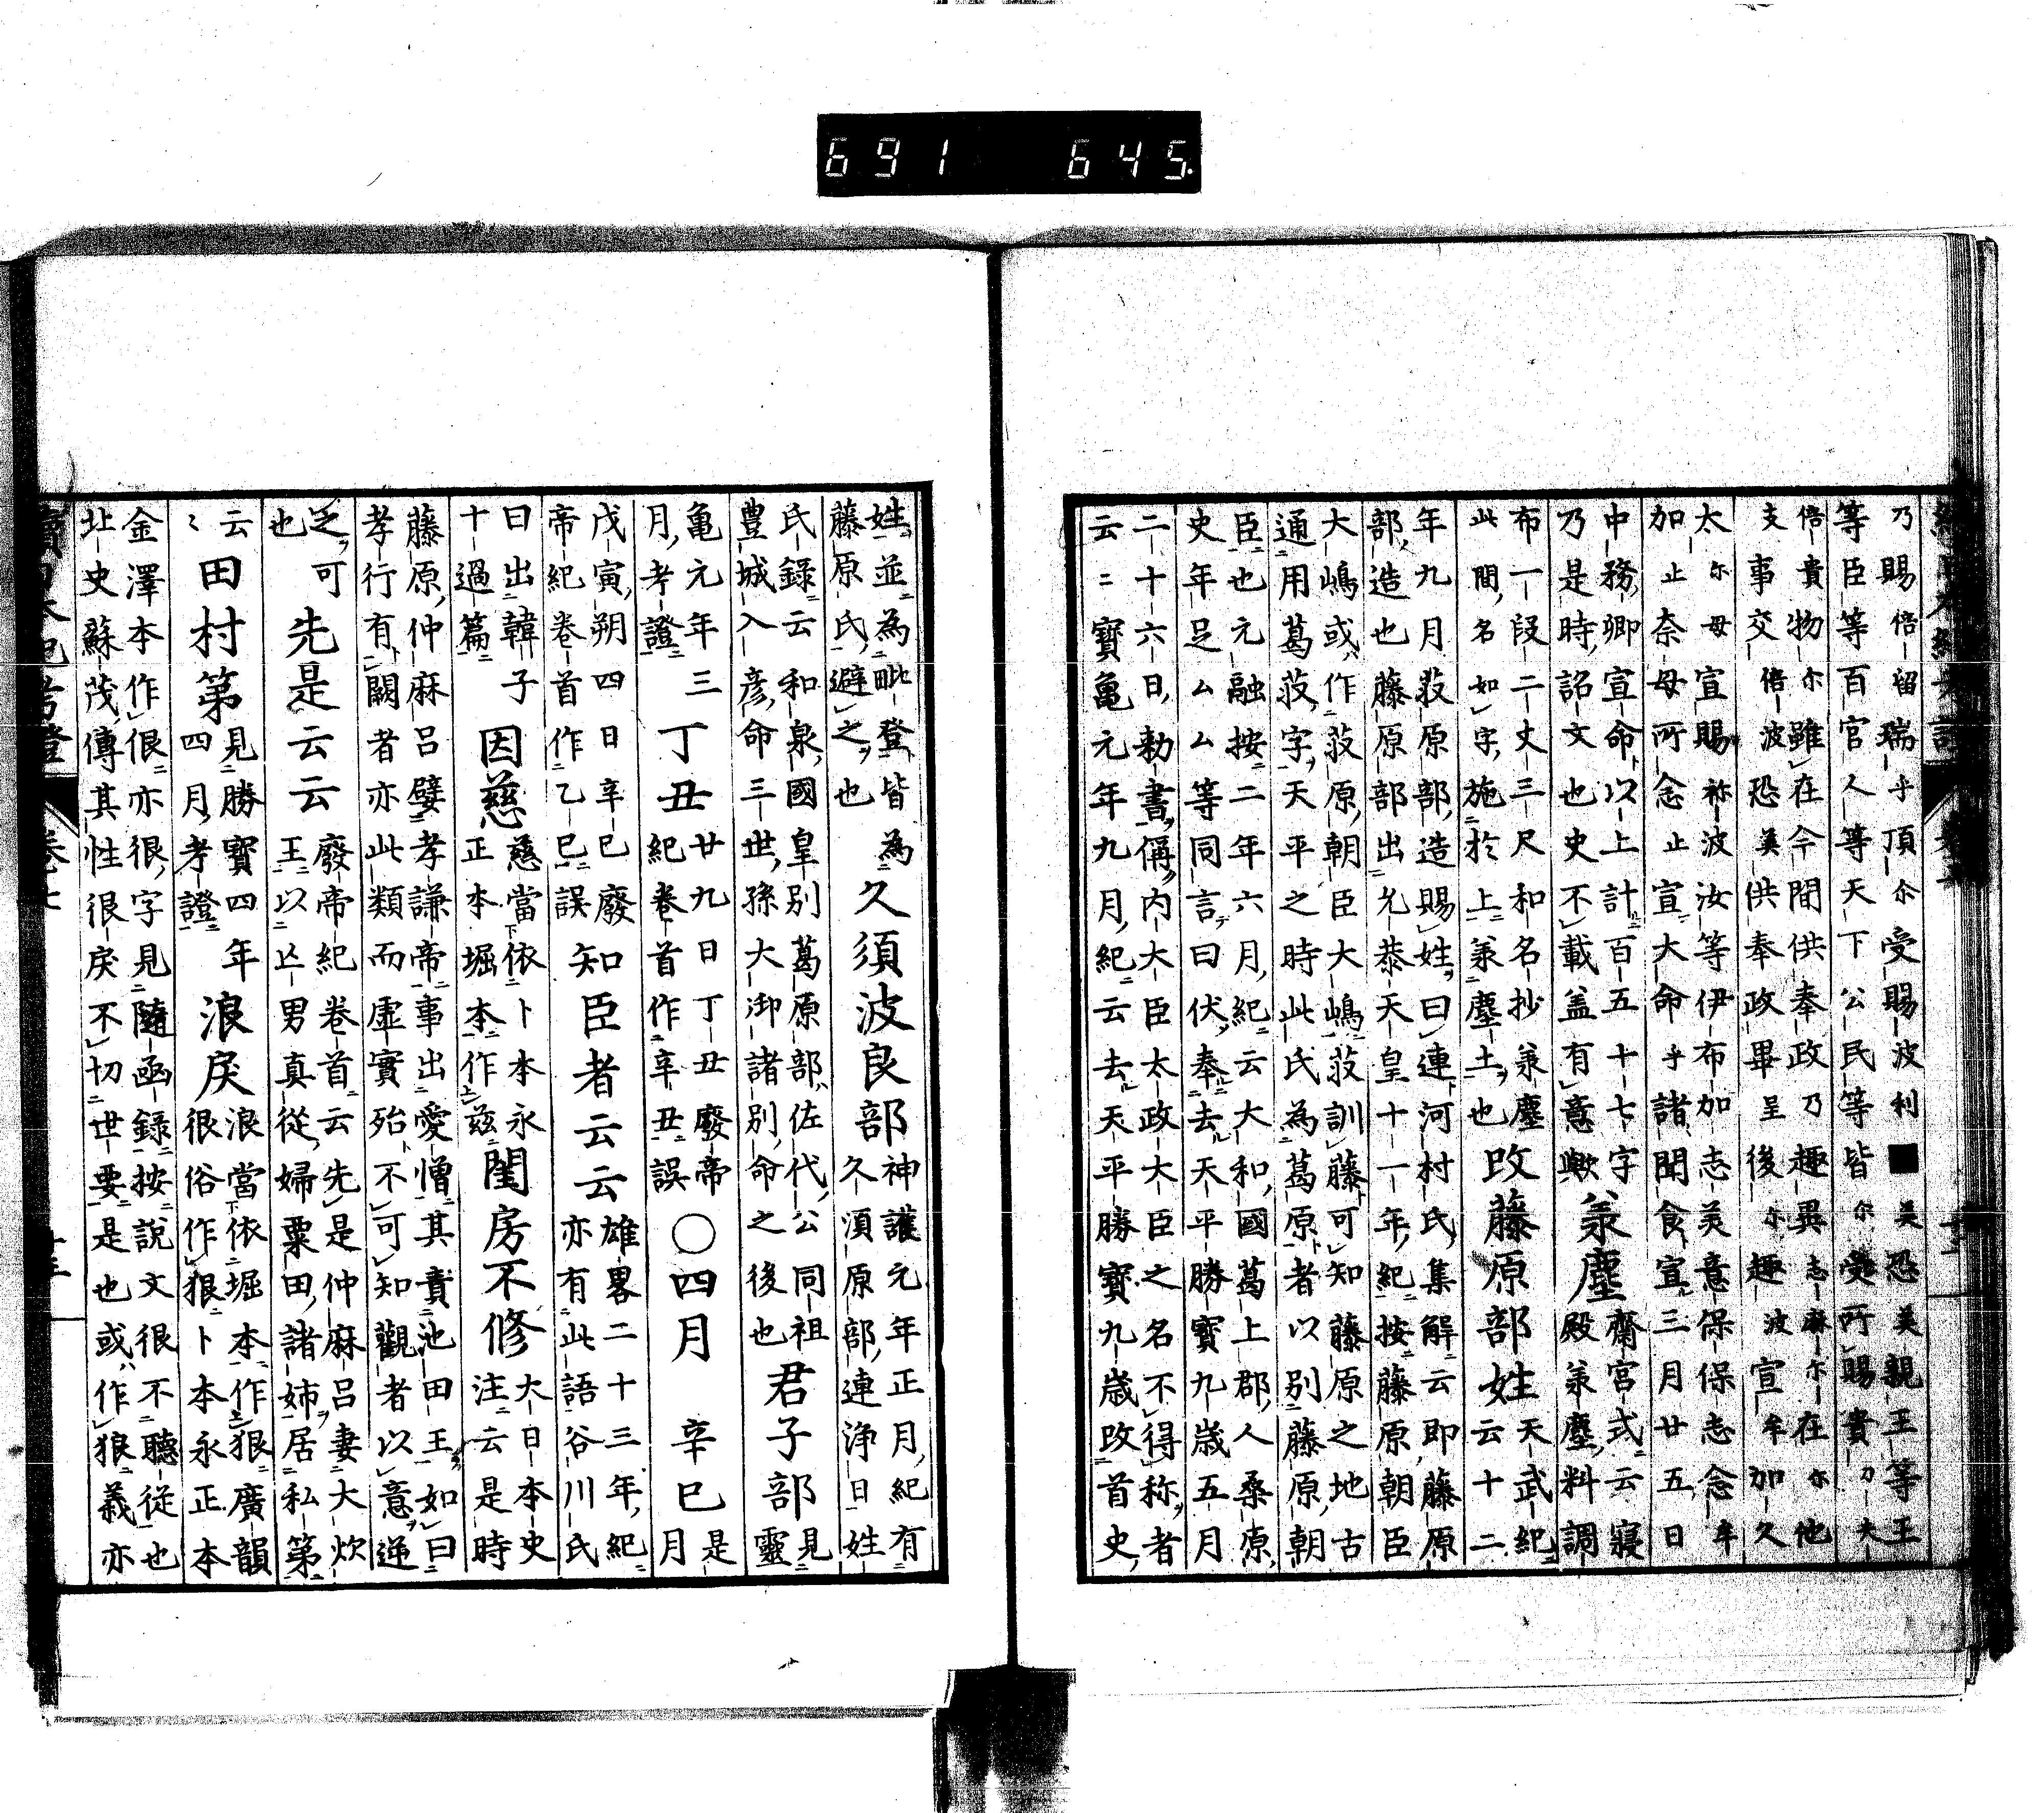 691 645.
乃賜倍留瑞乎頂尓受賜波利■美恐美親王等王
等臣等百官人等天下公民等皆尓受所賜貴刀大
倍貴物尓雖在今間供奉政乃趣異志麻尓在尓他
支事交倍波恐美供奉政畢呈後尓趣波宣牟加久
太尓母宣賜祢波汝等伊布加志美意保保志念牟
加止奈母所念止宣大命乎諸聞食宣三月廿五日
中務卿宣命以上計百五十七字
乃是時詔文也史不載盖有意歟
羕塵
齋宮式云寢
殿羕塵料調
布一段二丈三尺和名抄羕塵
此間名如字施於上羕塵土也
改藤原部姓
天武紀
云十二
年九月䓻原部造賜姓曰連河村氏集解云即藤原
部造也藤原部出允恭天皇十一年紀按藤原朝臣
大嶋或作䓻原朝臣大嶋䓻訓藤可知藤原之地古
通用葛䓻字天平之時此氏為葛原者以別藤原朝
臣也元融按二年六月紀云大和國葛上郡人桑原
史年足ムム等同言曰伏奉去天平勝寶九歳五月
二十六日勅書偁内大臣太政大臣之名不得称者
云〻寶亀元年九月紀云去天平勝寶九歳改首史
姓並為毗登皆為
藤原氏避之也
久須波良部
神護元年正月紀有
久湏原部連浄日姓
氏錄云和泉國皇別葛原部佐代公同祖
豊城入彦命三世孫大御諸別命之後也
君子部
見
靈
亀元年三
月考證
丁丑
廿九日丁丑廢帝
紀卷首作辛丑誤
○四月
辛巳
是
月
戊寅朔四日辛巳廢
帝紀卷首作乙巳誤
知臣者云云
雄畧二十三年紀
亦有此語谷川氏
曰出韓子
十過篇
因慈
慈當依卜本永
正本堀本作茲
閨房不修
大日本史
注云是時
藤原仲麻呂嬖孝謙帝事出愛憎其責池田王如曰
孝行有闕者亦此類而虛實殆不可知觀者以意逆
之可
也
先是云云
廢帝紀卷首云先是仲麻呂妻大炊
王以亡男真從婦粟田諸姉居私第
云
〻
田村第
見勝寶四年
四月考證
浪戻
浪當依堀本作狠廣韻
很俗作狠卜本永正本
金澤本作佷亦很字見隨函錄按說文很不聽從也
北史蘇茂傳其性很戾不切世要是也或作狼義亦